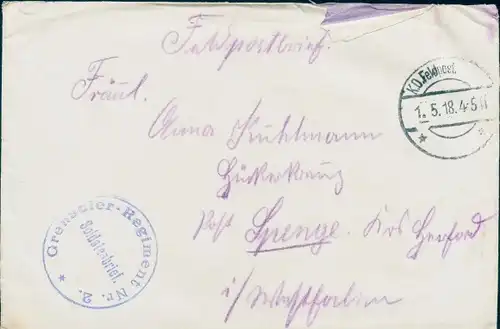 Feldpostbrief.
K.D.Feldpost.
1. 5. 18. 4-5 N
Fräul.
Anna Kuhlmann
Hückerkreuz
Post Spenge. Krs Herford
i/Westfalen
* Grenadier-Regiment Nr. 2. *
Soldatenbrief.